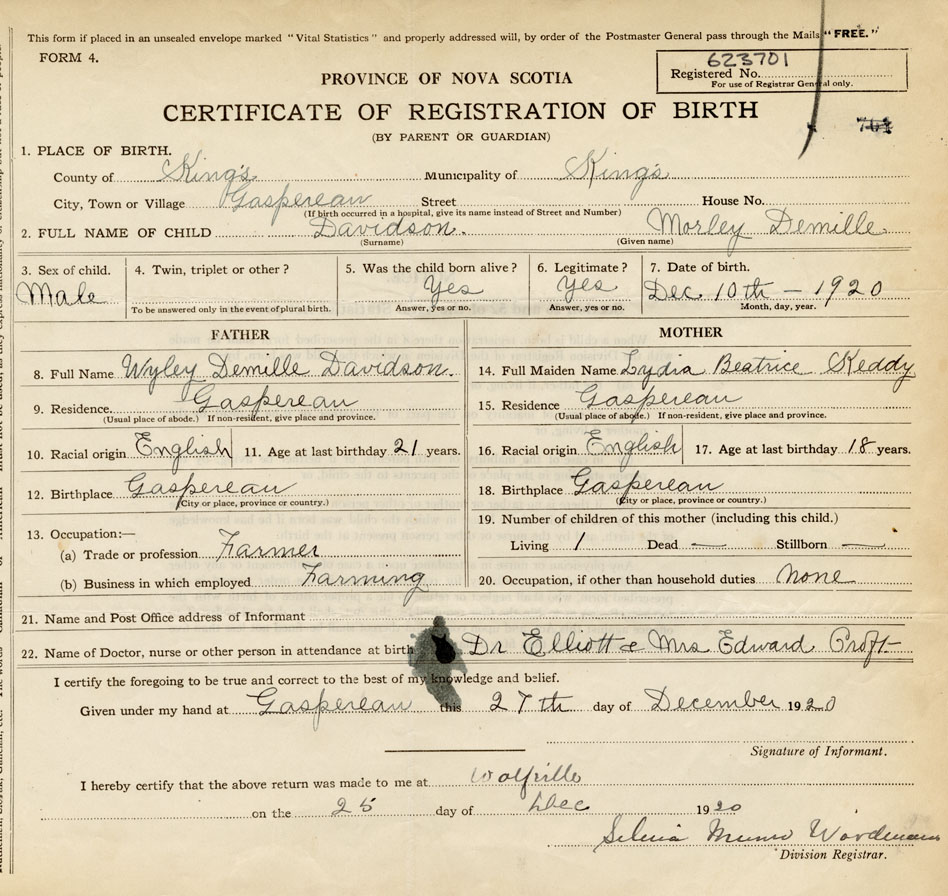 This form if placed in an unsealed envelope marked "Vital Statistics" and properly addressed will, by order of the Postmaster General pass through the Mails "FREE."
FORM 4.
623701
Registered No.
For use of Registrar General only.
PROVINCE OF NOVA SCOTIA
CERTIFICATE OF REGISTRATION OF BIRTH
(BY PARENT OR GUARDIAN)
1. PLACE OF BIRTH.
County of King's Municipality of King's
City, Town or Village Gaspereau Street House No.
(If birth occurred in a hospital, give its name instead of Street and Number)
2. FULL NAME OF CHILD Davidson. Morley Demille
(Surname) (Given name)
3. Sex of child. 4. Twin, triplet or other? 5. Was the child born alive? 6. Legitimate? 7. Date of birth.
Male Yes Yes Dec. 10th - 1920
To be answered only in the event of plural birth. Answer, yes or no. Answer, yes or no. Month, day, year.
FATHER MOTHER
8. Full Name Wyley Demille Davidson. 14. Full Maiden Name Lydia Beatrice Keddy
9. Residence. Gaspereau 15. Residence Gaspereau
(Usual place of abode.) If non-resident, give place and province. (Usual place of abode.) If non-resident, give place and province.
10. Racial origin English 11. Age at last birthday 21 years. 16. Racial origin English 17. Age at last birthday 18 years.
12. Birthplace Gaspereau 18. Birthplace Gaspereau
(City or place, province or country.) (City or place, province or country.)
13. Occupation:— 19. Number of children of this mother (including this child.)
(a) Trade or profession Farmer Living 1 Dead — Stillborn —
(b) Business in which employed Farming 20. Occupation, if other than household duties None
21. Name and Post Office address of Informant
22. Name of Doctor, nurse or other person in attendance at birth Dr Elliott & Mrs Edward
I certify the foregoing to be true and correct to the best of my knowledge and belief.
Given under my hand at Gaspereau this 27th day of December 1920
Signature of Informant.
I hereby certify that the above return was made to me at Wolfville
on the 25 day of Dec 1920
Munro
Division Registrar.